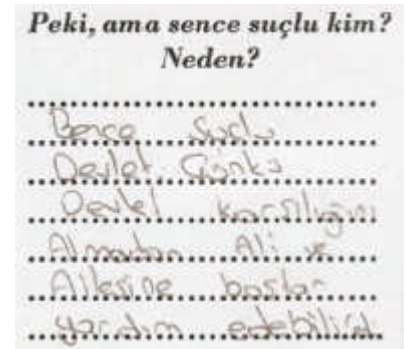 Peki, ama sence suçlu kim?
Neden?
Bence Suçlu
Devlet Çünkü
Devlet karşılığını
Almadan Ali ve
Ailesine
yardım edebilird